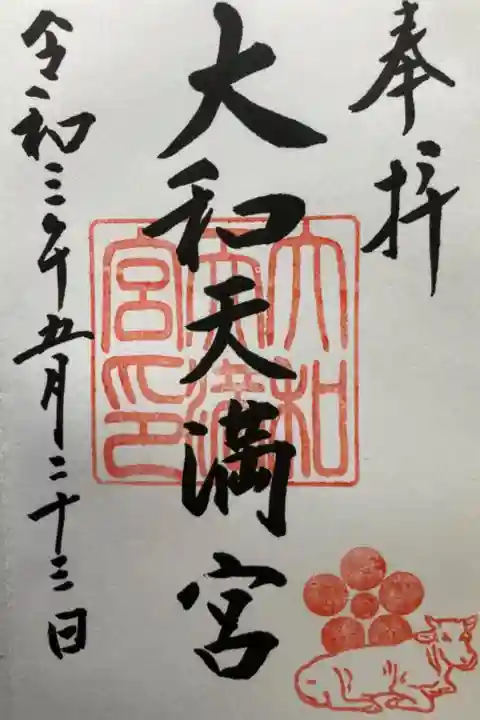 奉拝
大和天満宮
令和三年五月二十三日
大和天満宮印